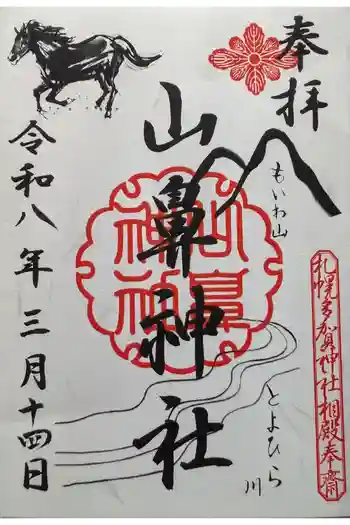 奉拝
もいわ山
札幌多賀神社相殿奉齋
山鼻神社
山鼻神社
とよひら川
令和八年三月十四日